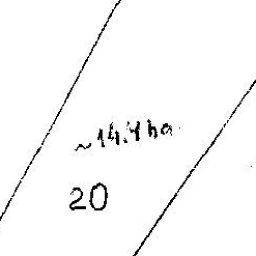 ~14.4 ha
20